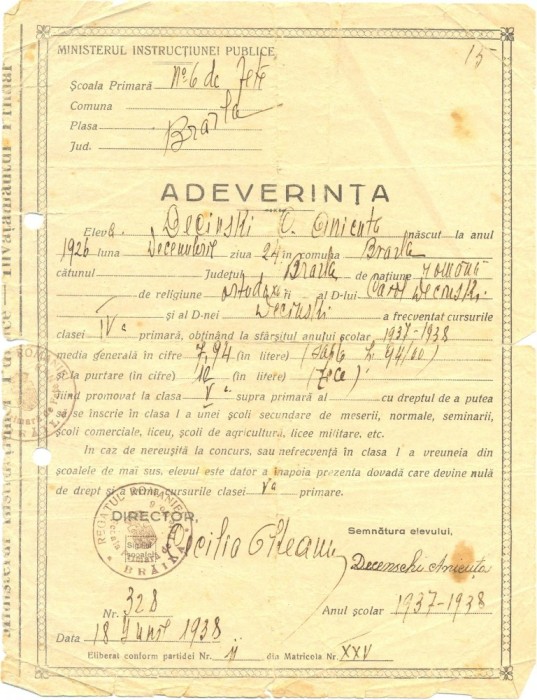 15
MINISTERUL INSTRUCȚIUNEI PUBLICE
Școala Primară No 6 de Fete
Comuna
Plasa Braila
Jud.
ADEVERINȚA
Eleva Decinski C. Anicuta născut la anul
1926 luna Decembrie ziua 24 în comuna Braila
cătunul Județul Braila de națiune română
de religiune ortodoxă fii al D-lui Carol Decinski
și al D-nei Decinski a frecventat cursurile
clasei IV a primară, obținând la sfârșitul anului școlar 1937-1938
media generală în cifre 7,94 (în litere) (Șapte și 94/00)
și la purtare (în cifre) 10 (în litere) (Zece)
fiind promovat la clasa V a supra primară al cu dreptul de a putea
să se înscrie în clasa I a unei școli secundare de meserii, normale, seminarii,
școli comerciale, liceu, școli de agricultură, licee militare, etc.
In caz de nereușită la concurs, sau nefrecvență în clasa I a vreuneia din
școalele de mai sus, elevul este dator a înapoia prezenta dovadă care devine nulă
de drept și a urma cursurile clasei Va primare.
DIRECTOR,
Cecilia Olteanu
Semnătura elevului,
Decenschi Anicuța
REGATUL ROMÂNIEI
BRĂILA
Nr. 328
Anul școlar 1937-1938
Data 18 Iunie 1938
Eliberat conform partidei Nr. 11 din Matricola Nr. XXV